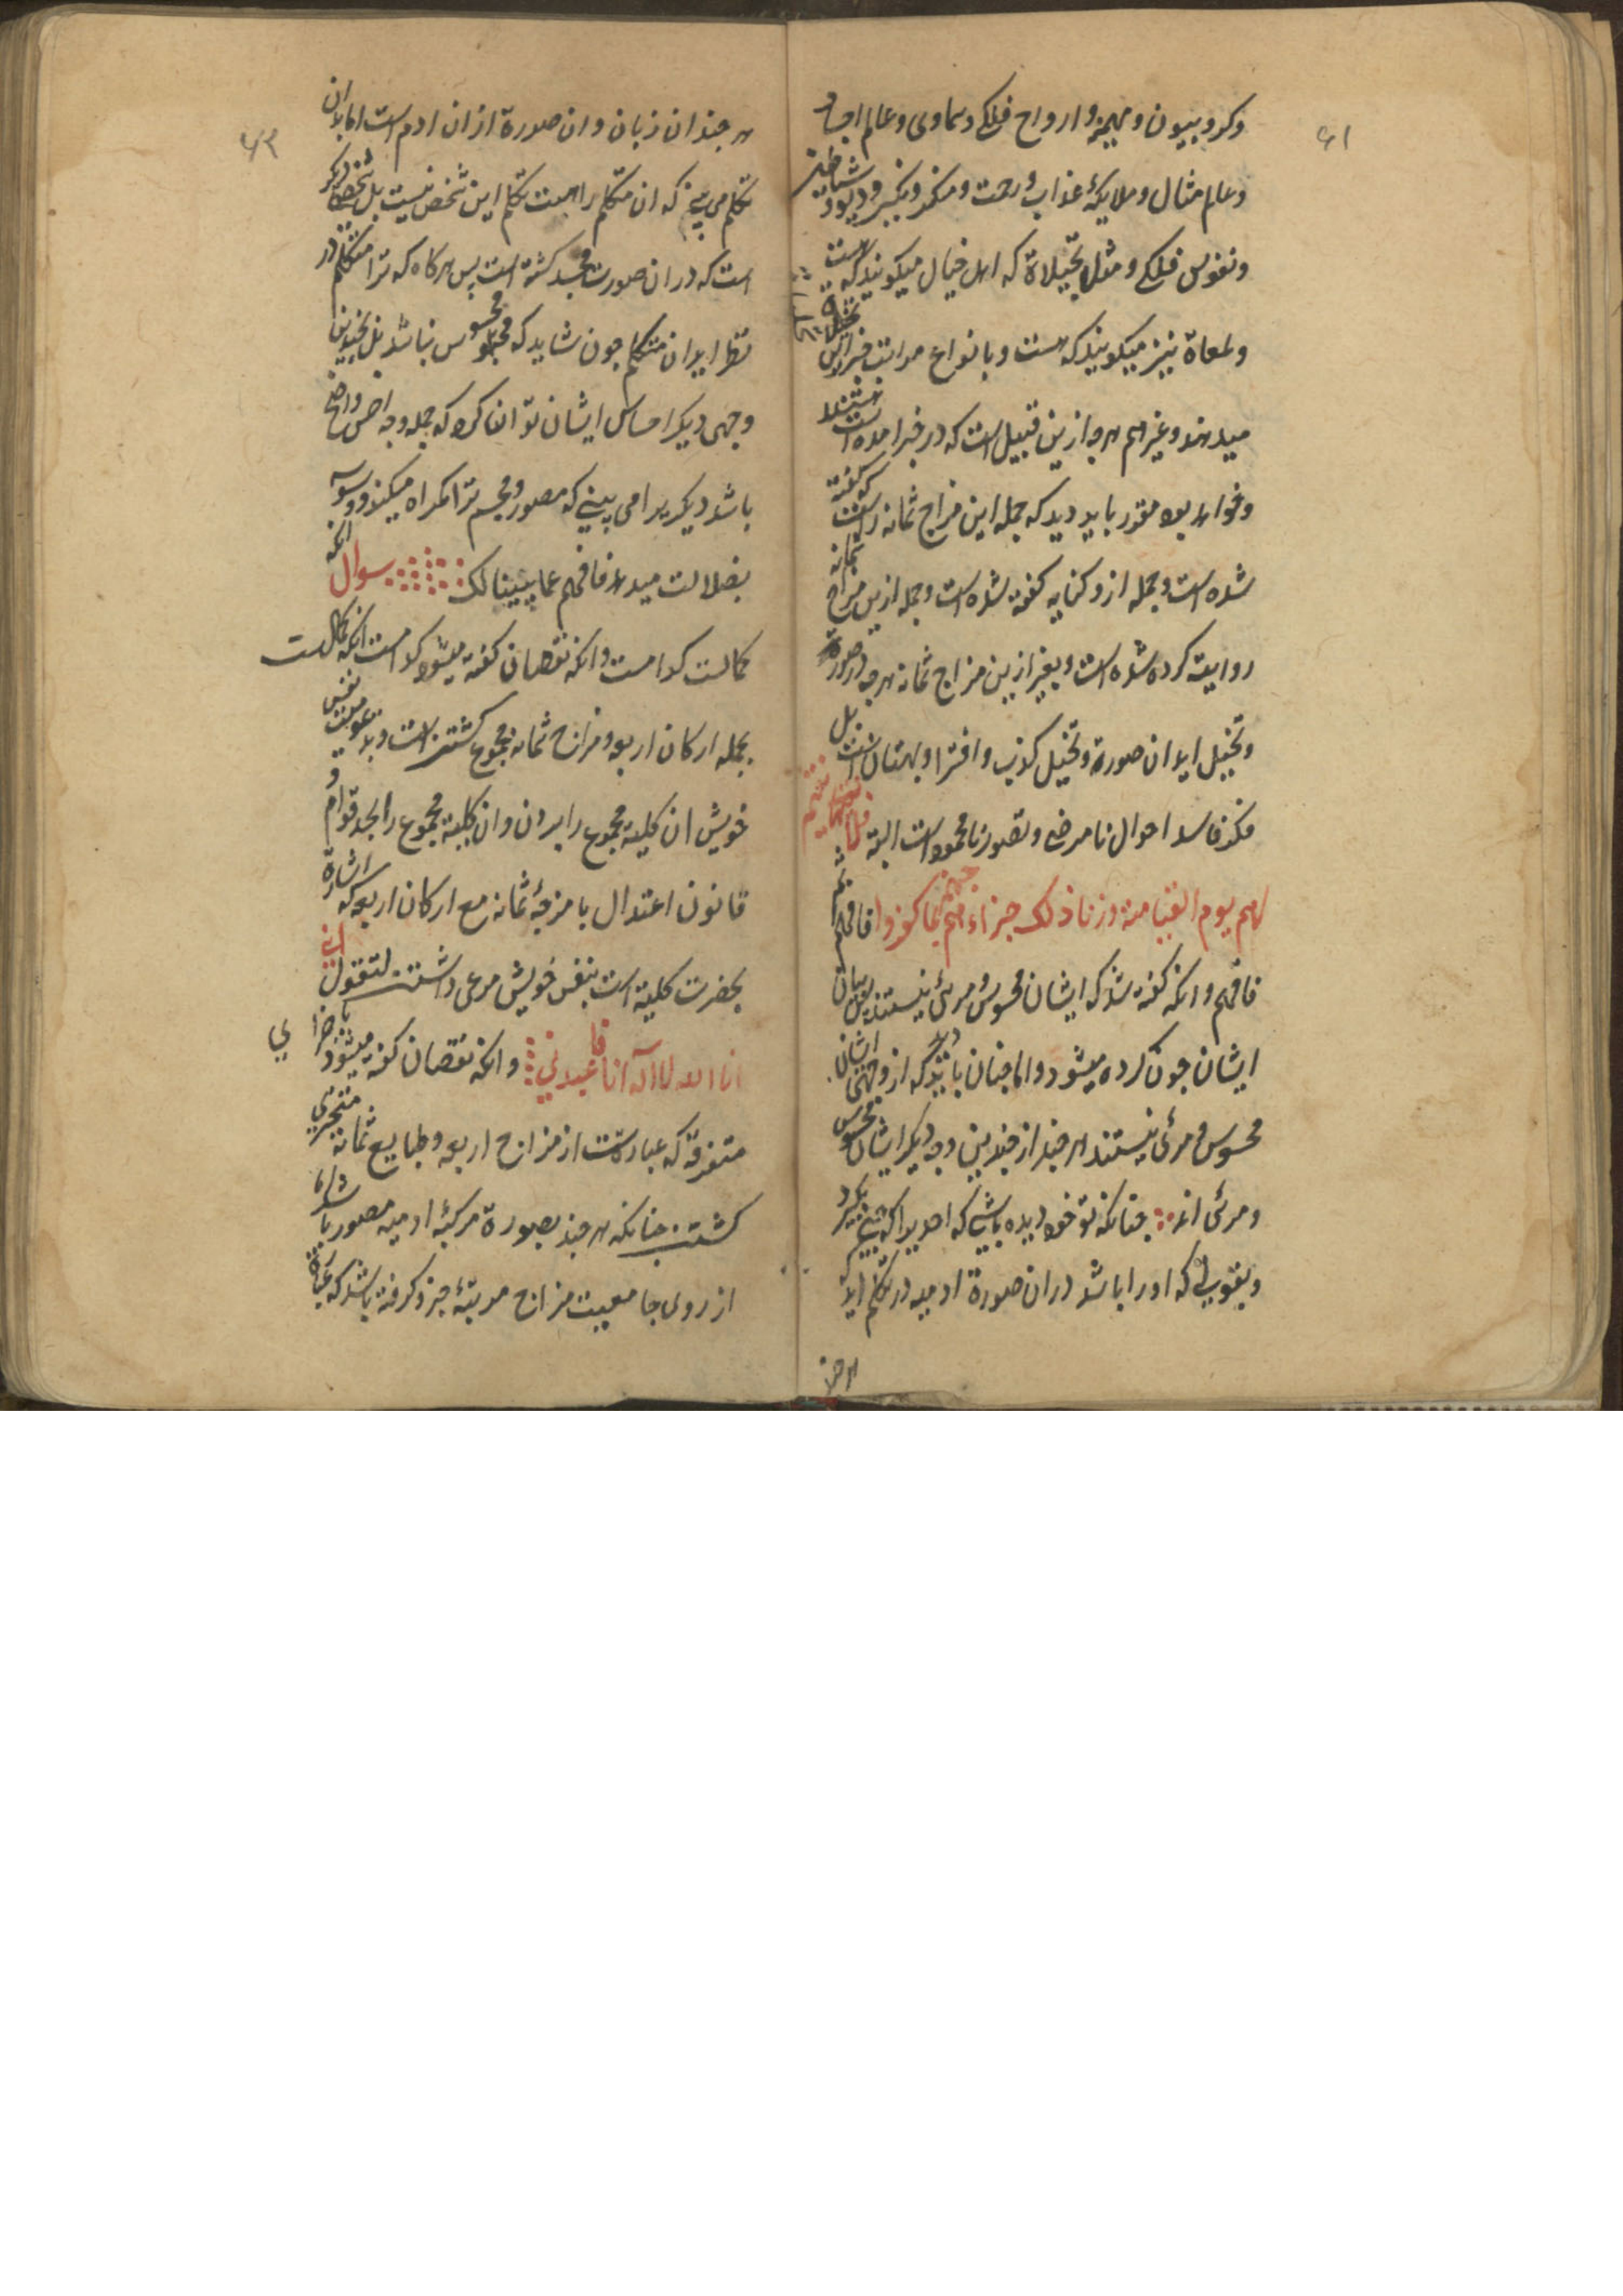 ۶۱
وکروبیون و مهیمنه و ارواح فلکی و سماوی و عالم
وعالم مثال و ملایکهٔ عذاب و رحمت و منکر و نکیر و دیو و شیاطین
ونفوس فلکی و مثل تخیلاة که اهل خیال میکویند که هست
ولمعاة نیز میکویند که هست و بانواع مراتب خبر ازین
میدهند و غیرهم هرچه ازین قبیل است که در خبر امده است
وخواهد بود مقرر باید دید که جمله این مزاج ثمانه راست که کفته
شده است و جمله ازو کنایه کفته شده است و جمله ازین مزاج ثمانه
روایت کرده شده است و بغیر ازین مزاج ثمانه هرچه در صورة
وتخییل اید ان صورة و تخییل کذب و افترا و بهتان است بل
فکر فاسد احوال نامرضی و تصور نامحمود است البته فلا نقیم
لهم یوم القیامة وزنا ذلک جزاءهم جهنم بما کفروا فافهم ثم
فافهم وانکه کفته شد که ایشان محسوس و مرئی نیستند بیان
ایشان چون کرده میشود واما چنان باید دید که از وجهی ایشان
محسوس و مرئی نیستند هرچند از چندین وجه دیکر ایشان محسوس
و مرئی اند چنانکه تو خود دیده باشی که احدیرا که
وبقوتی که او را باشد در ان صورة ادمیه در تکلم اید
هرچند
۶۲
هرچند ان زبان و ان صورة ازان ادم است اما بدان
تکلم می بینی که ان متکلم را هست تکلم این شخص نیست بل شخصی دیکر
است که در ان صورت مجسد کشته است پس هرکاه که ترا متکلم در
نظر اید ان متکلم چون شاید که محسوس نباشد بل بچندین
وجهی دیکر احساس ایشان توان کرد که جمله وجه اخص واضح
باشد دیکریرا می بینی که مصور و مجسم ترا کمراه میکند و وسوسه
بضلالت میدهد فافهم عما بیینا لک سوال انکه
کمالت کدامست وانکه نقصان کفته میشود کدامست انکه کمالست
بجمله ارکان اربعه و مزاج ثمانه مجموع کشتن است و بتقویت نفس
خویش ان کلیه مجموع را بردن وان کلیه مجموع را بحد قوام و
قانون اعتدال بامزجهٔ ثمانه مع ارکان اربعه که اشارة
بحضرت کلیة است بنفس خویش مرعی داشتن لتقول انی
انا الله لا اله انا فاعبدنی وانکه نقصان کفته میشود باجزای
متفرقه که عبارتست از مزاج اربعه و طبایع ثمانه متجزی
کشتن چنانکه هرچند بصورة مرکبهٔ ادمیه مصور باشد اما
از روی جامعیت مزاج مرتبهٔ جزو کرفته باشد که